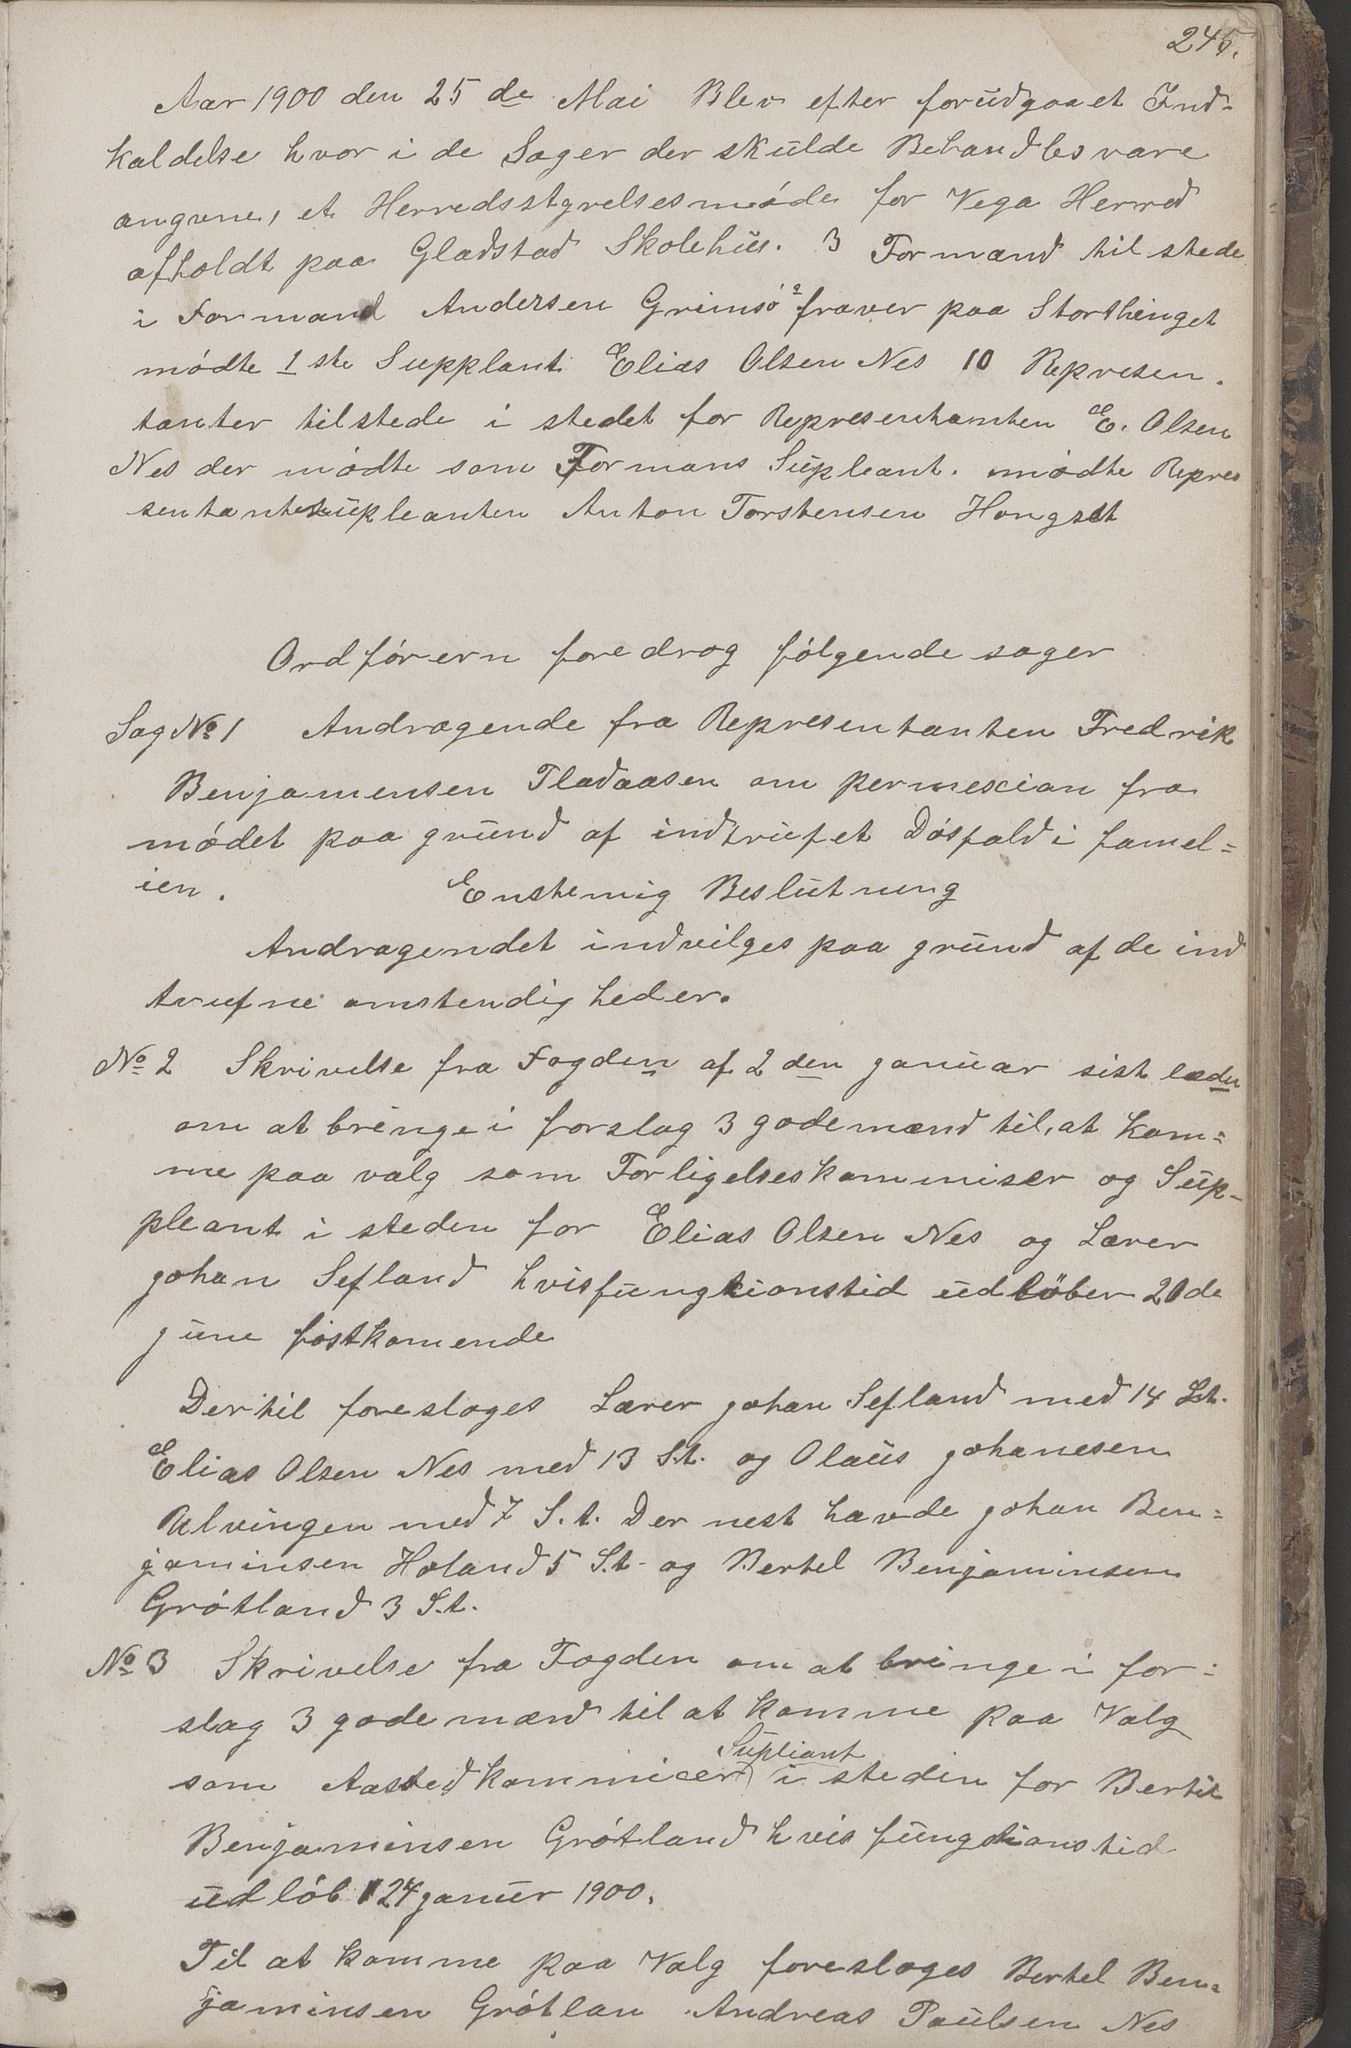 245.
Aar 1900 den 25 de Mai Blev efter forudgaaet Ind-
kaldelse hvor i de Sager der skulde Behandles vare
angivne, et Herredsstyrelsesmøde for Vega Herred
afholdt paa Gladstad Skolehus. 3 Formænd til stede
i Formand Andersen Grimsø's fraver paa Storthinget
mødte 1 ste Supplant Elias Olsen Nes 10 Represen-
tanter tilstede i stedet for Representanten E. Olsen
Nes der mødte som Formans Supleant. mødte Repres
sentantsupleanten Anton Torstensen Hongset
Ordførern foredrog følgende sager
Sag No 1 Andragende fra Representanten Fredrik
Benjamensen Fladaasen om permesion fra
mødet paa grund af indtrufet Dösfald i famel=
ien. Enstemig Beslutning
Andragendet indvilges paa grund af de ind
trufne omstendigheder.
No 2 Skrivelse fra Fogden af 2 den januar sist leden
om at bringe i forslag 3 godemænd til, at kom=
me paa valg som Forligelseskommiser og Sup-
pleant i steden for Elias Olsen Nes og Lærer
johan Sefland hvis fungtionstid udløber 21de
june føstkomende
Dertil foresloges Lærer johan Sefland med 14 St.
Elias Olsen Nes med 13 S.t. og Olaus johanesen
Ulvingen med 7 S.t. Der nest havde johan Ben=
jaminsen Holand 5 S.t. og Bertel Benjaminsen
Grøtland 3 S.t.
No 3 Skrivelse fra Fogden om at bringe i for=
slag 3 godemænd til at komme paa Valg
som Aastedkommicer Supliant i steden for Bertil
Benjaminsen Grøtland hvis fungtionstid
udløb 24 januer 1900.
Til at komme paa Valg foresloges Bertel Ben=
jaminsen Grøtlan Andreas Paulsen Nes